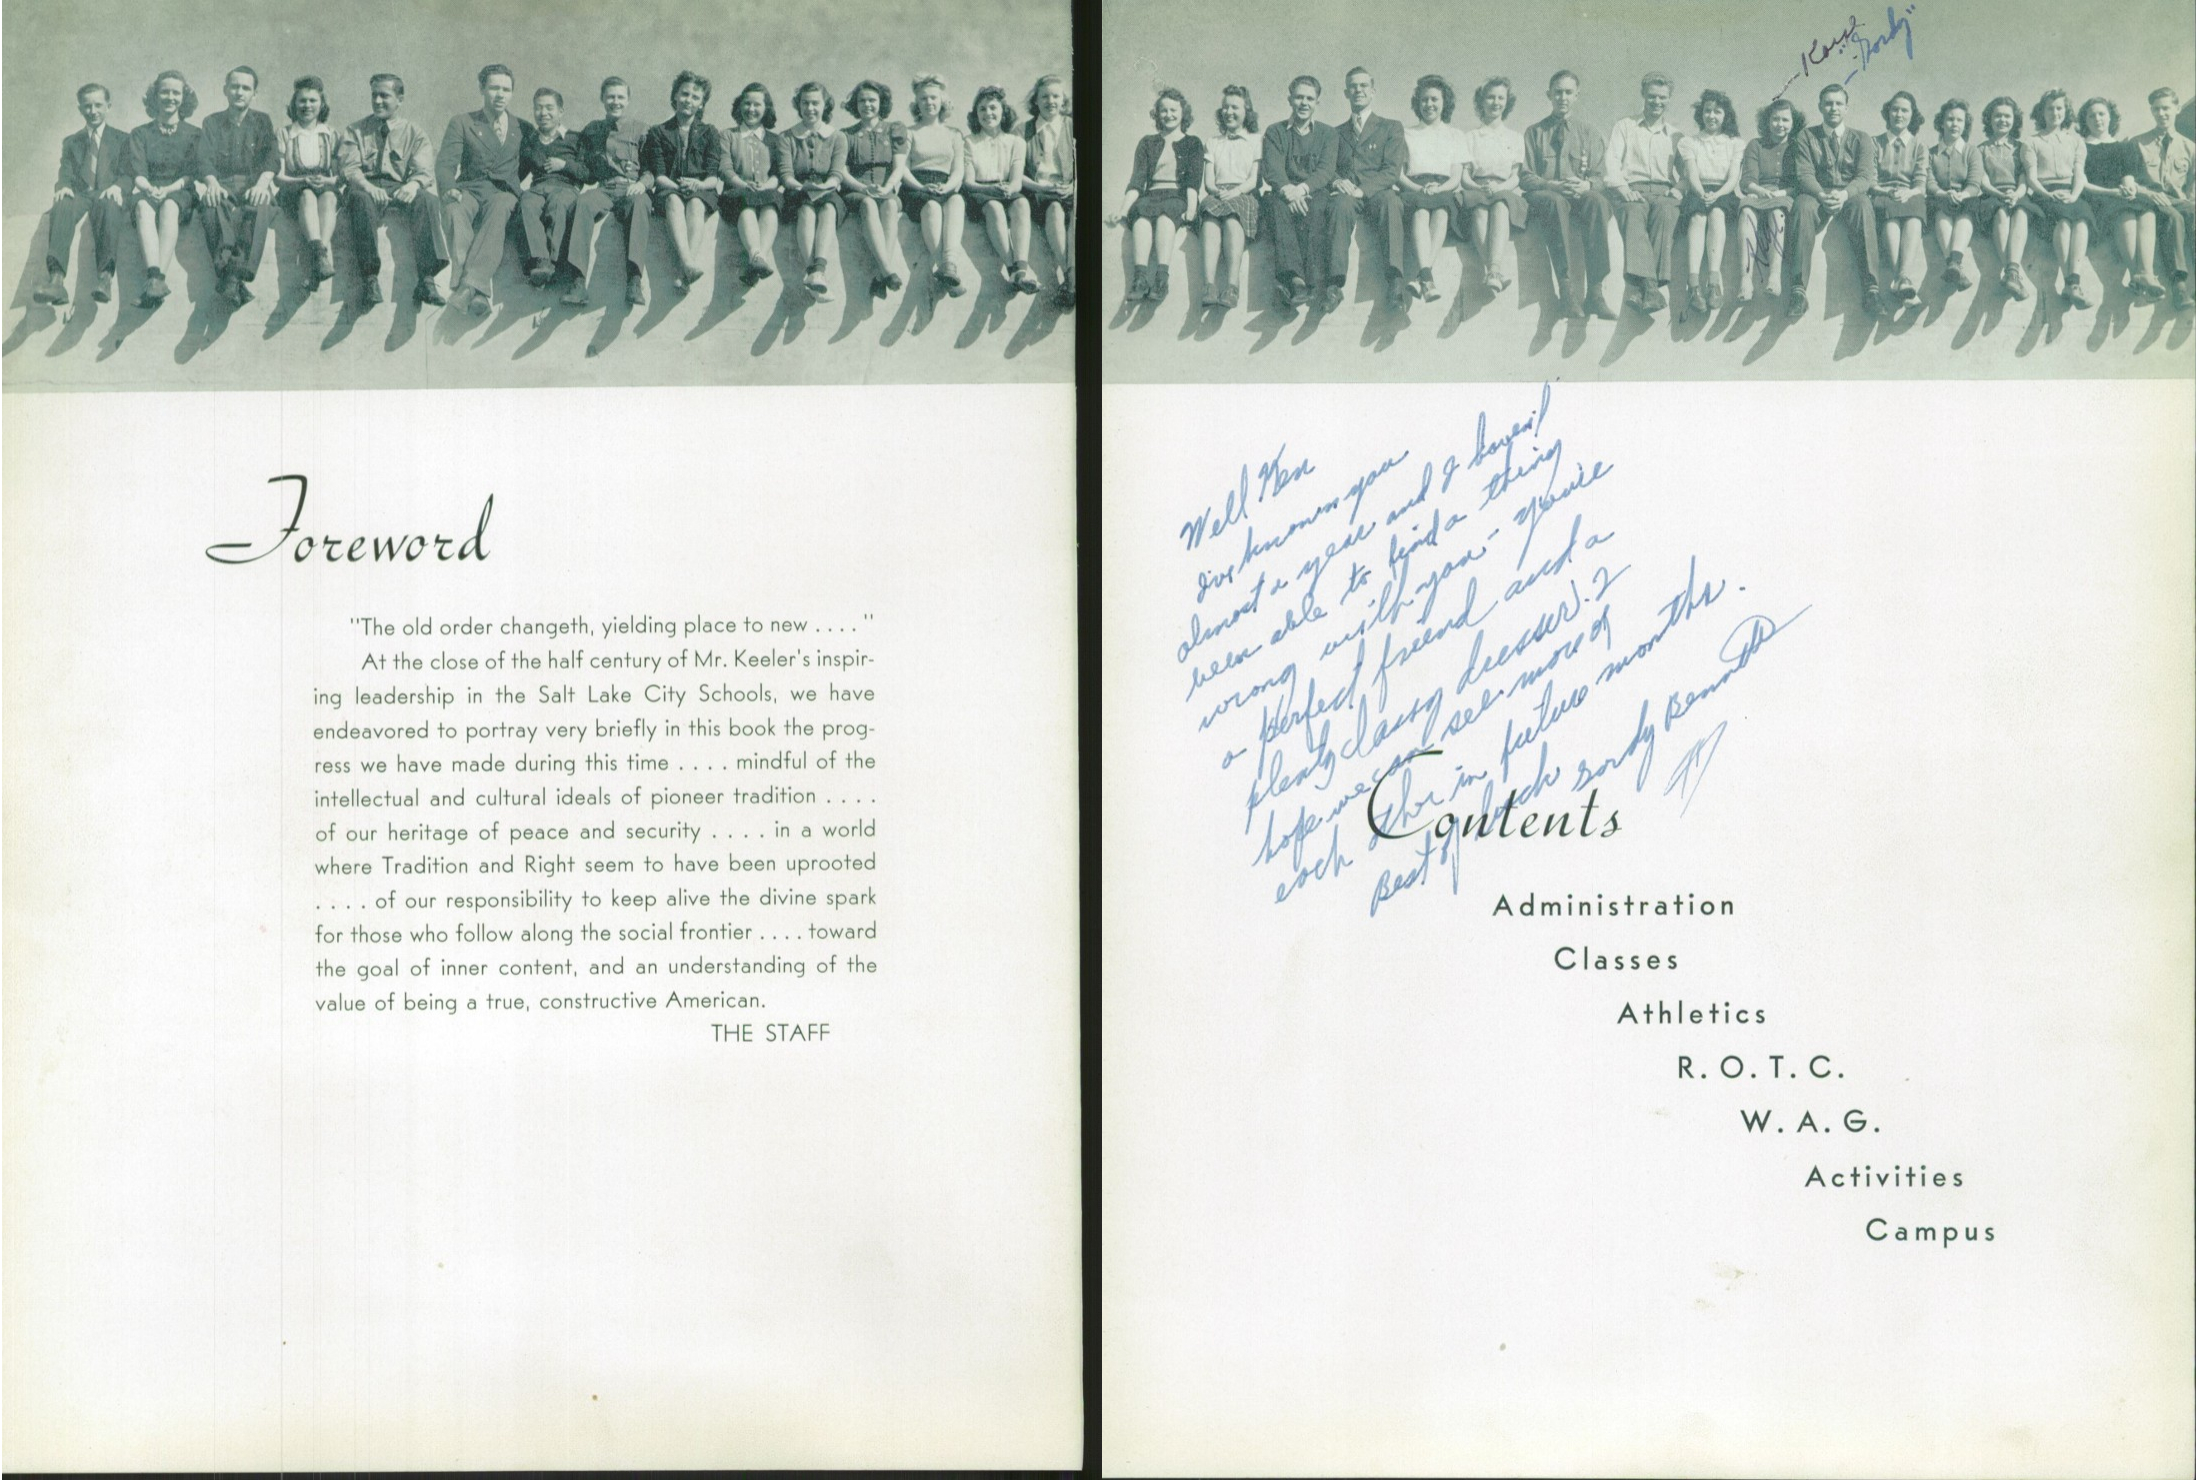 Foreword
"The old order changeth, yielding place to new . . . . "
At the close of the half century of Mr. Keeler's inspir-
ing leadership in the Salt Lake City Schools, we have
endeavored to portray very briefly in this book the prog-
ress we have made during this time . . . . mindful of the
intellectual and cultural ideals of pioneer tradition . . . .
of our heritage of peace and security . . . . in a world
where Tradition and Right seem to have been uprooted
. . . . of our responsibility to keep alive the divine spark
for those who follow along the social frontier . . . . toward
the goal of inner content, and an understanding of the
value of being a true, constructive American.
THE STAFF
"Gordy"
Well Ken
I've known you
almost a year and I haven't
been able to find a thing
wrong with you - you're
a perfect friend and a
plenty classy dresser. I
hope we can see more of
each other in future months.
Best of luck Gordy Bennett
Contents
Administration
Classes
Athletics
R. O. T. C.
W. A. G.
Activities
Campus